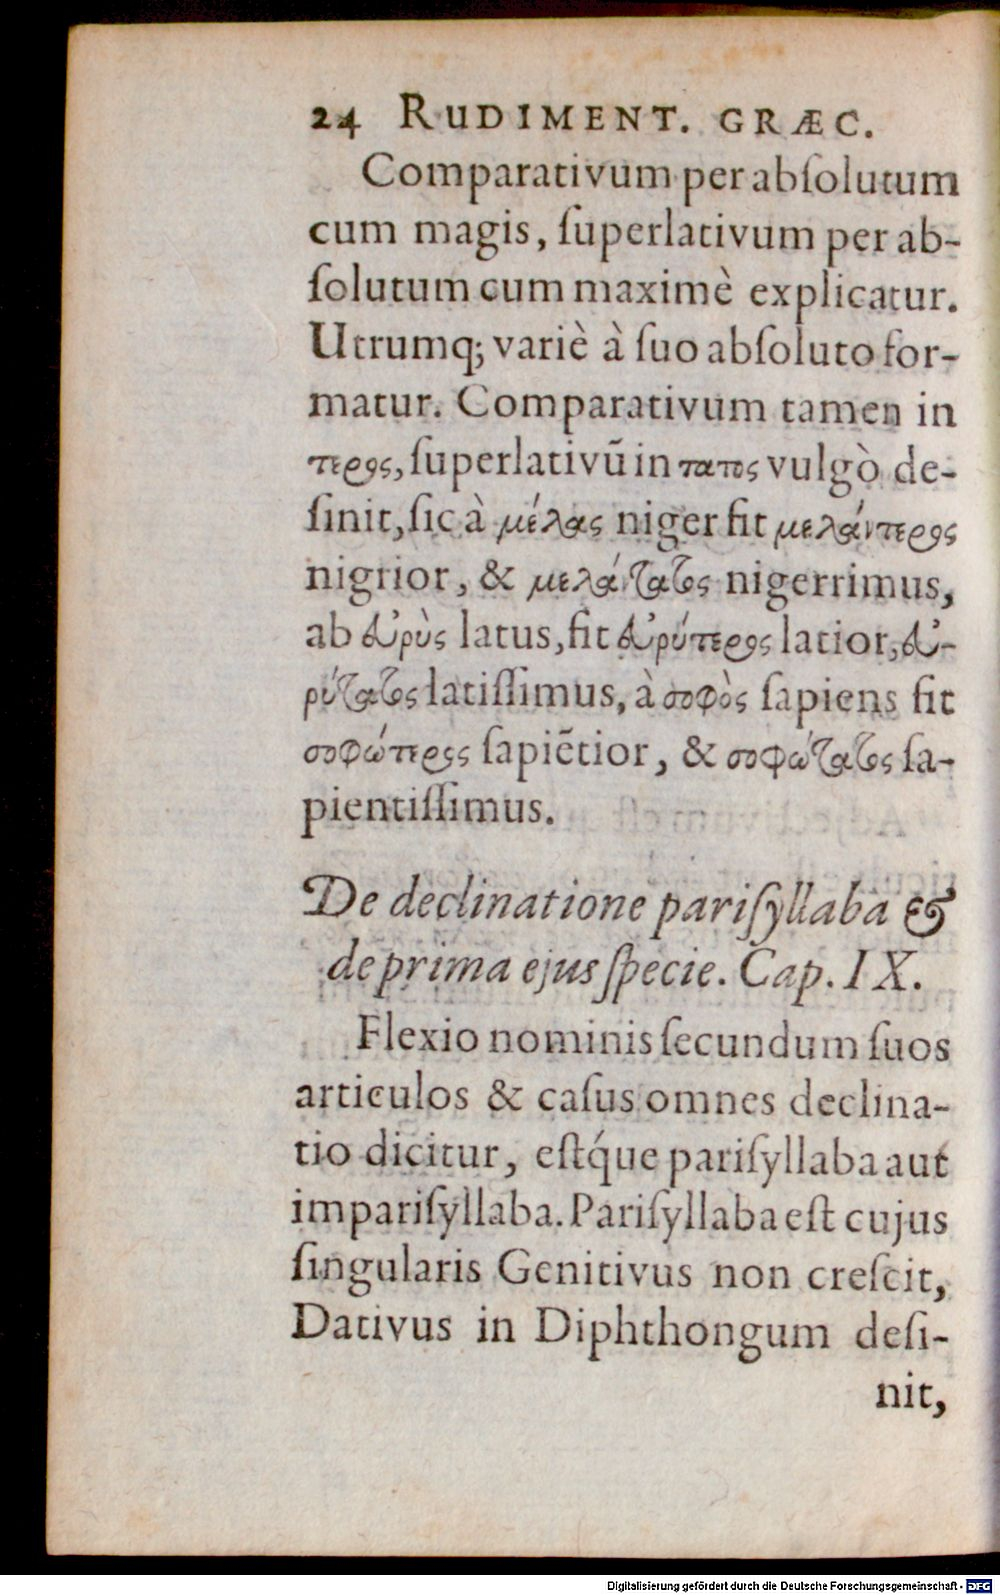 24 RUDIMENT. GRÆC.
Comparativum per abſolutum
cum magis, ſuperlativum per ab-
ſolutum cum maximè explicatur.
Utrumq; variè à ſuo abſoluto for-
matur. Comparativum tamen in
τερος, ſuperlativū in τατος vulgò de-
ſinit, ſic à μέλας niger fit μελάντερος
nigrior, & μελάντατος nigerrimus,
ab εὐρὺς latus, fit εὐρύτερος latior, εὐ-
ρύτατος latiſſimus, à σοφὸς ſapiens fit
σοφώτερος ſapiētior, & σοφώτατος ſa-
pientiſſimus.
De declinatione pariſyllaba &
de prima ejus ſpecie. Cap. IX.
Flexio nominis ſecundum ſuos
articulos & caſus omnes declina-
tio dicitur, eſtq́ue pariſyllaba aut
impariſyllaba. Pariſyllaba eſt cujus
ſingularis Genitivus non creſcit,
Dativus in Diphthongum deſi-
nit,
Digitalisierung gefördert durch die Deutsche Forschungsgemeinschaft - DFG